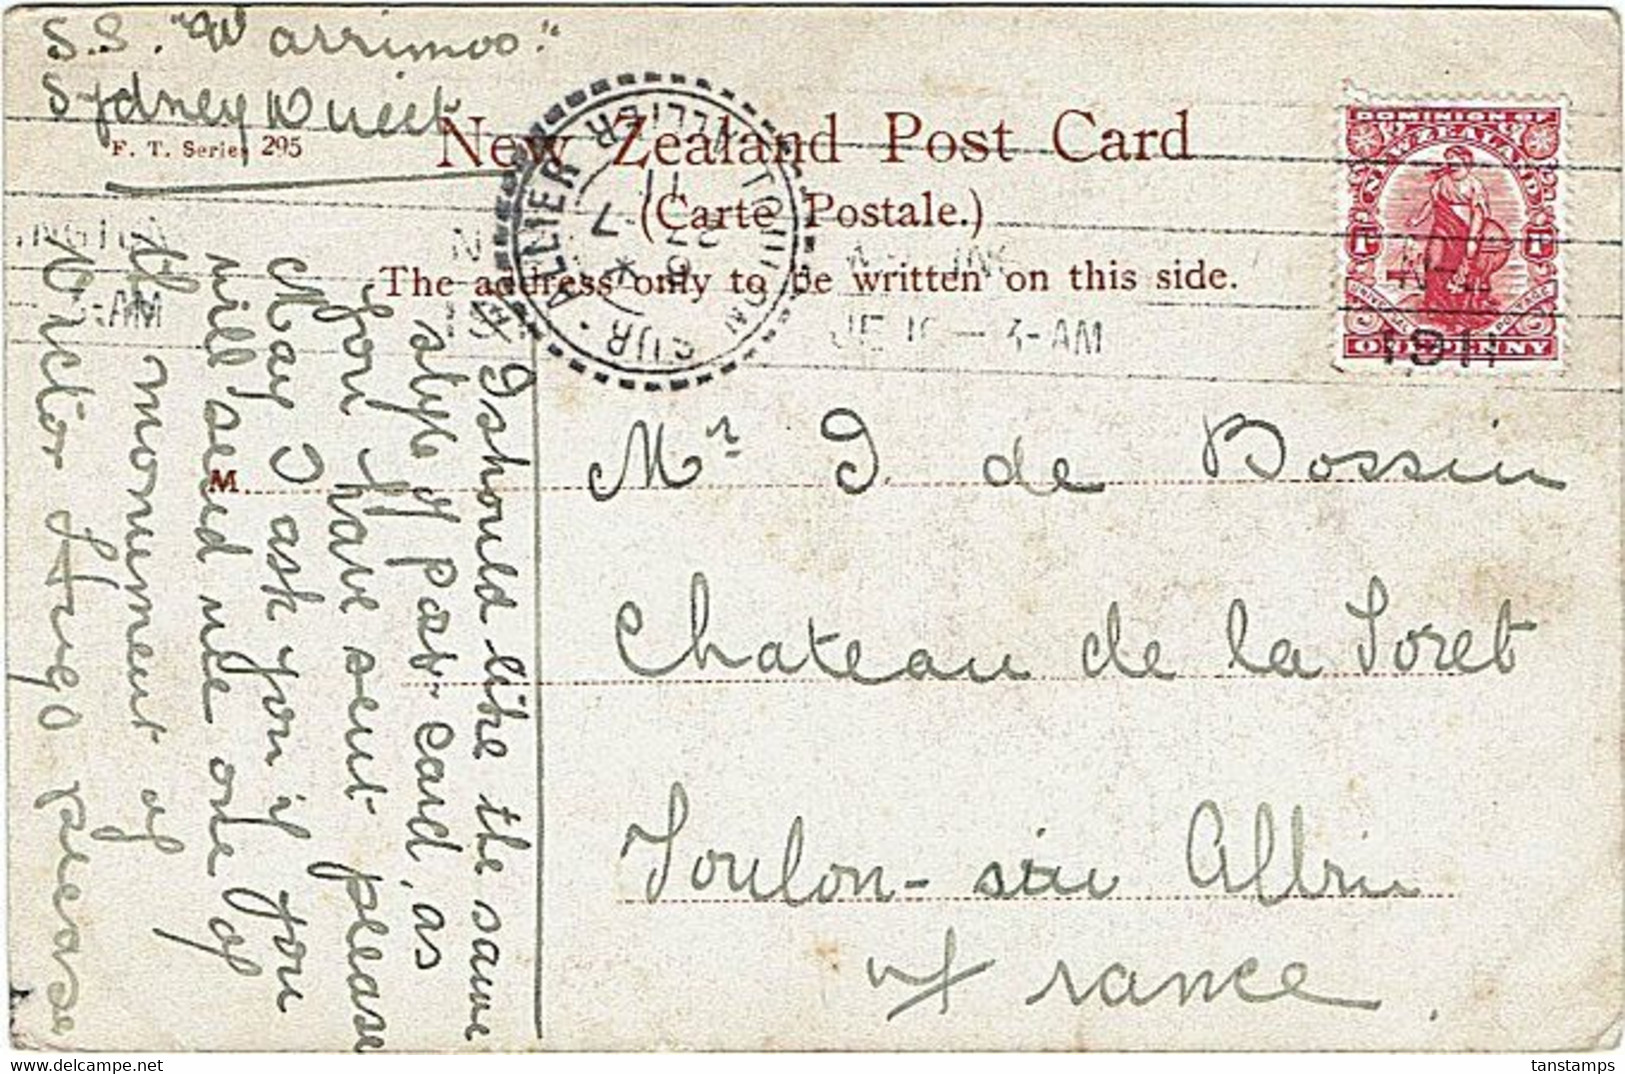 S.S. "Warrimoo."
Sydney Direct
F. T. Series 295
New Zealand Post Card
(Carte Postale.)
The address only to be written on this side.
DOMINION OF
NEW ZEALAND
UNIVERSAL POSTAGE
ONE PENNY
TOULON SUR ALLIER
ALLIER
27
7
11
3-AM
JE 10 - 3-AM
1911
M
Mr J. de Bossin
Chateau de la Foret
Toulon - sur Allier
France.
I should like the same
style of post card, as
you have sent please
May I ask you if you
will send me one of
the monument of
Victor Hugo please
tanstamps